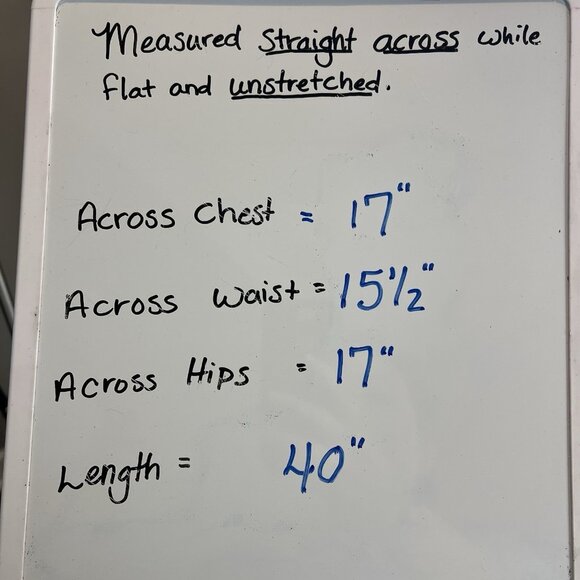 Measured Straight across while
flat and unstretched.
Across Chest = 17"
Across Waist = 15 1/2"
Across Hips = 17"
Length = 40"